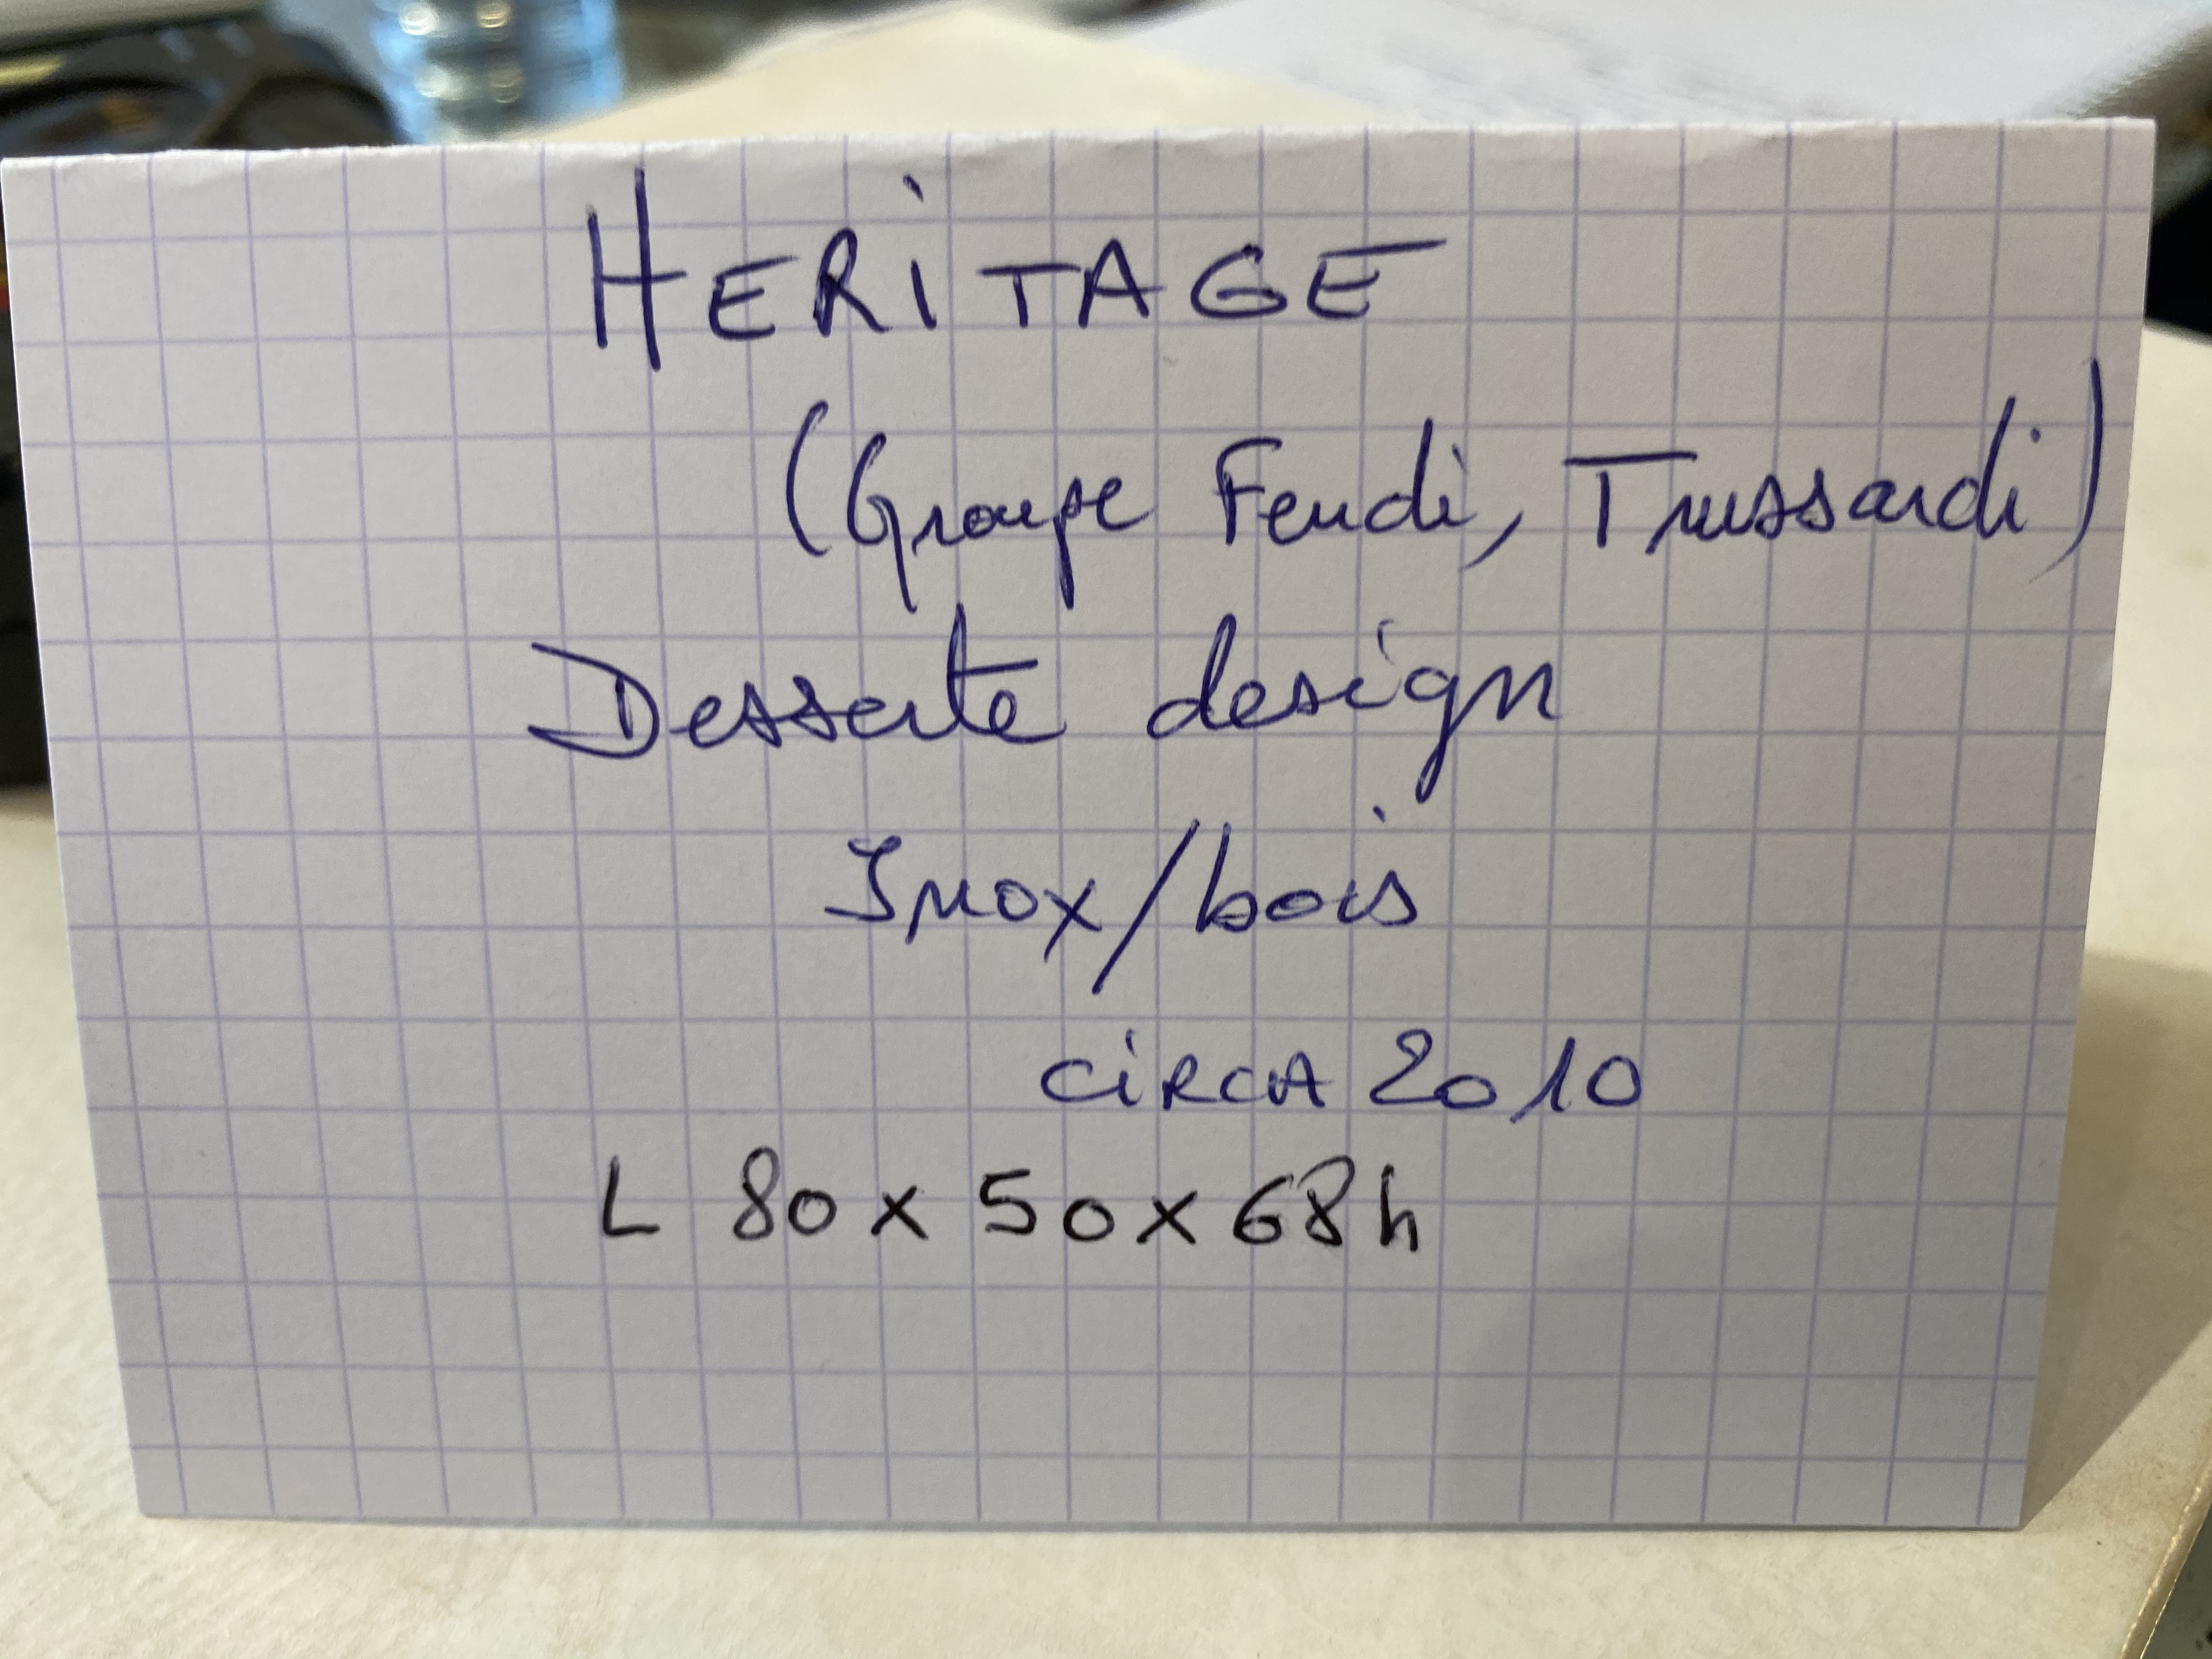 HERITAGE
(Groupe Fendi, Trussardi)
Desserte design
Inox/bois
CIRCA 2010
L 80 x 50 x 68 h